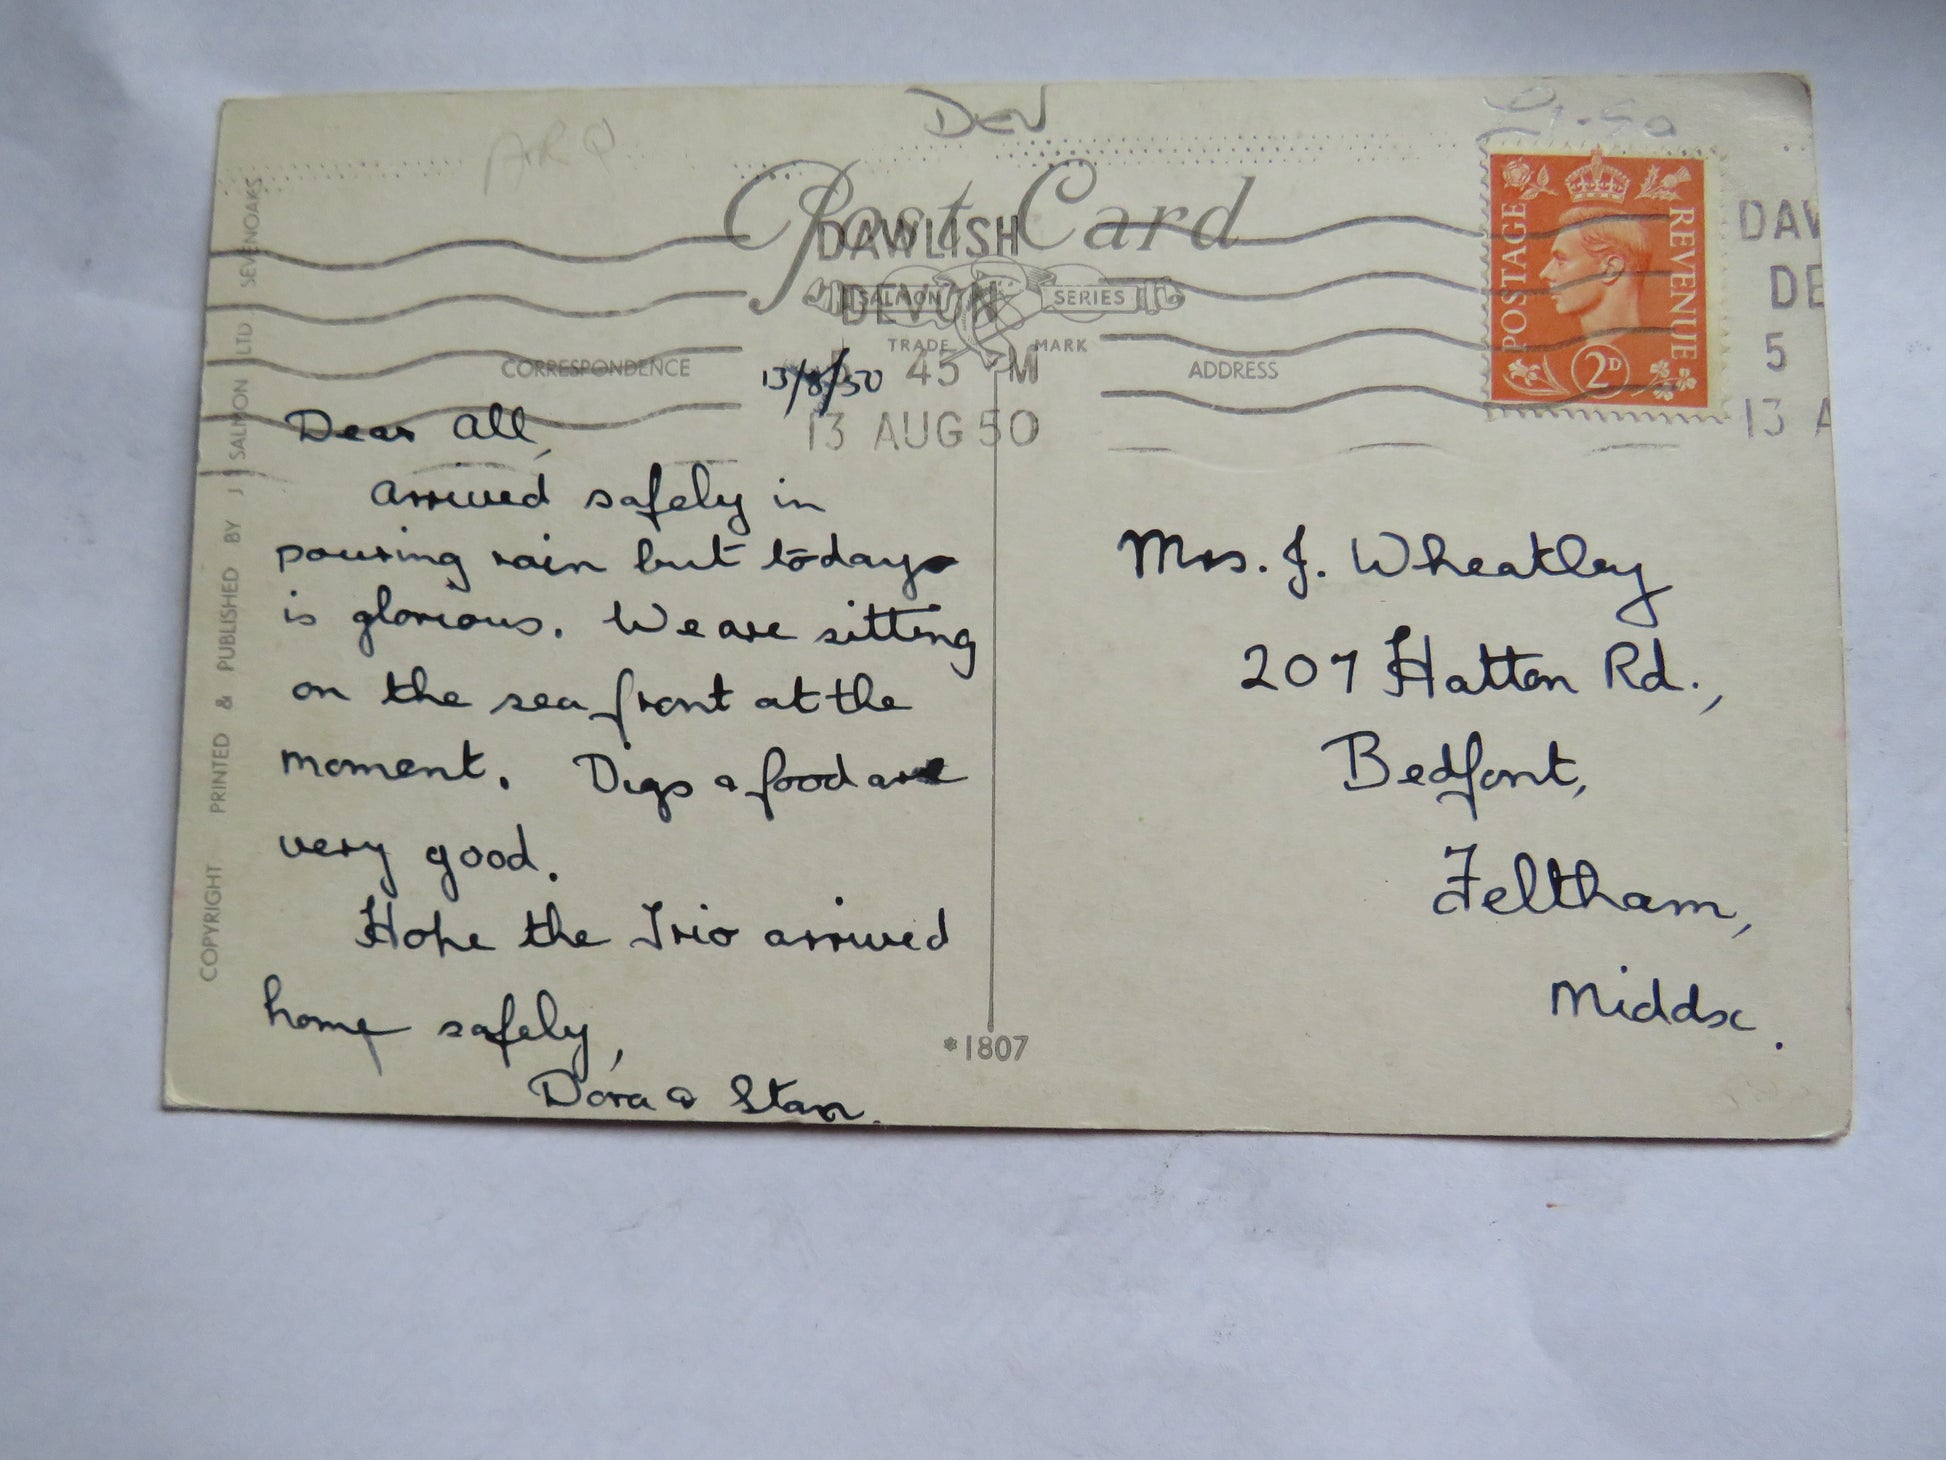 Dev
£1.50
Post Card
DAWLISH
DEVON
SALMON SERIES
TRADE MARK
45 M
13 AUG 50
POSTAGE
REVENUE
2D
DAW
DE
5
13 A
CORRESPONDENCE
ADDRESS
13/8/50
Dear all,
arrived safely in
pouring rain but today
is glorious. We are sitting
on the sea front at the
moment. Digs & food are
very good.
Hope the Trio arrived
home safely,
Dora & Stan.
Mrs. J. Wheatley
207 Hatton Rd.,
Bedfont,
Feltham,
Middx.
*1807
COPYRIGHT PRINTED & PUBLISHED BY J SALMON LTD SEVENOAKS